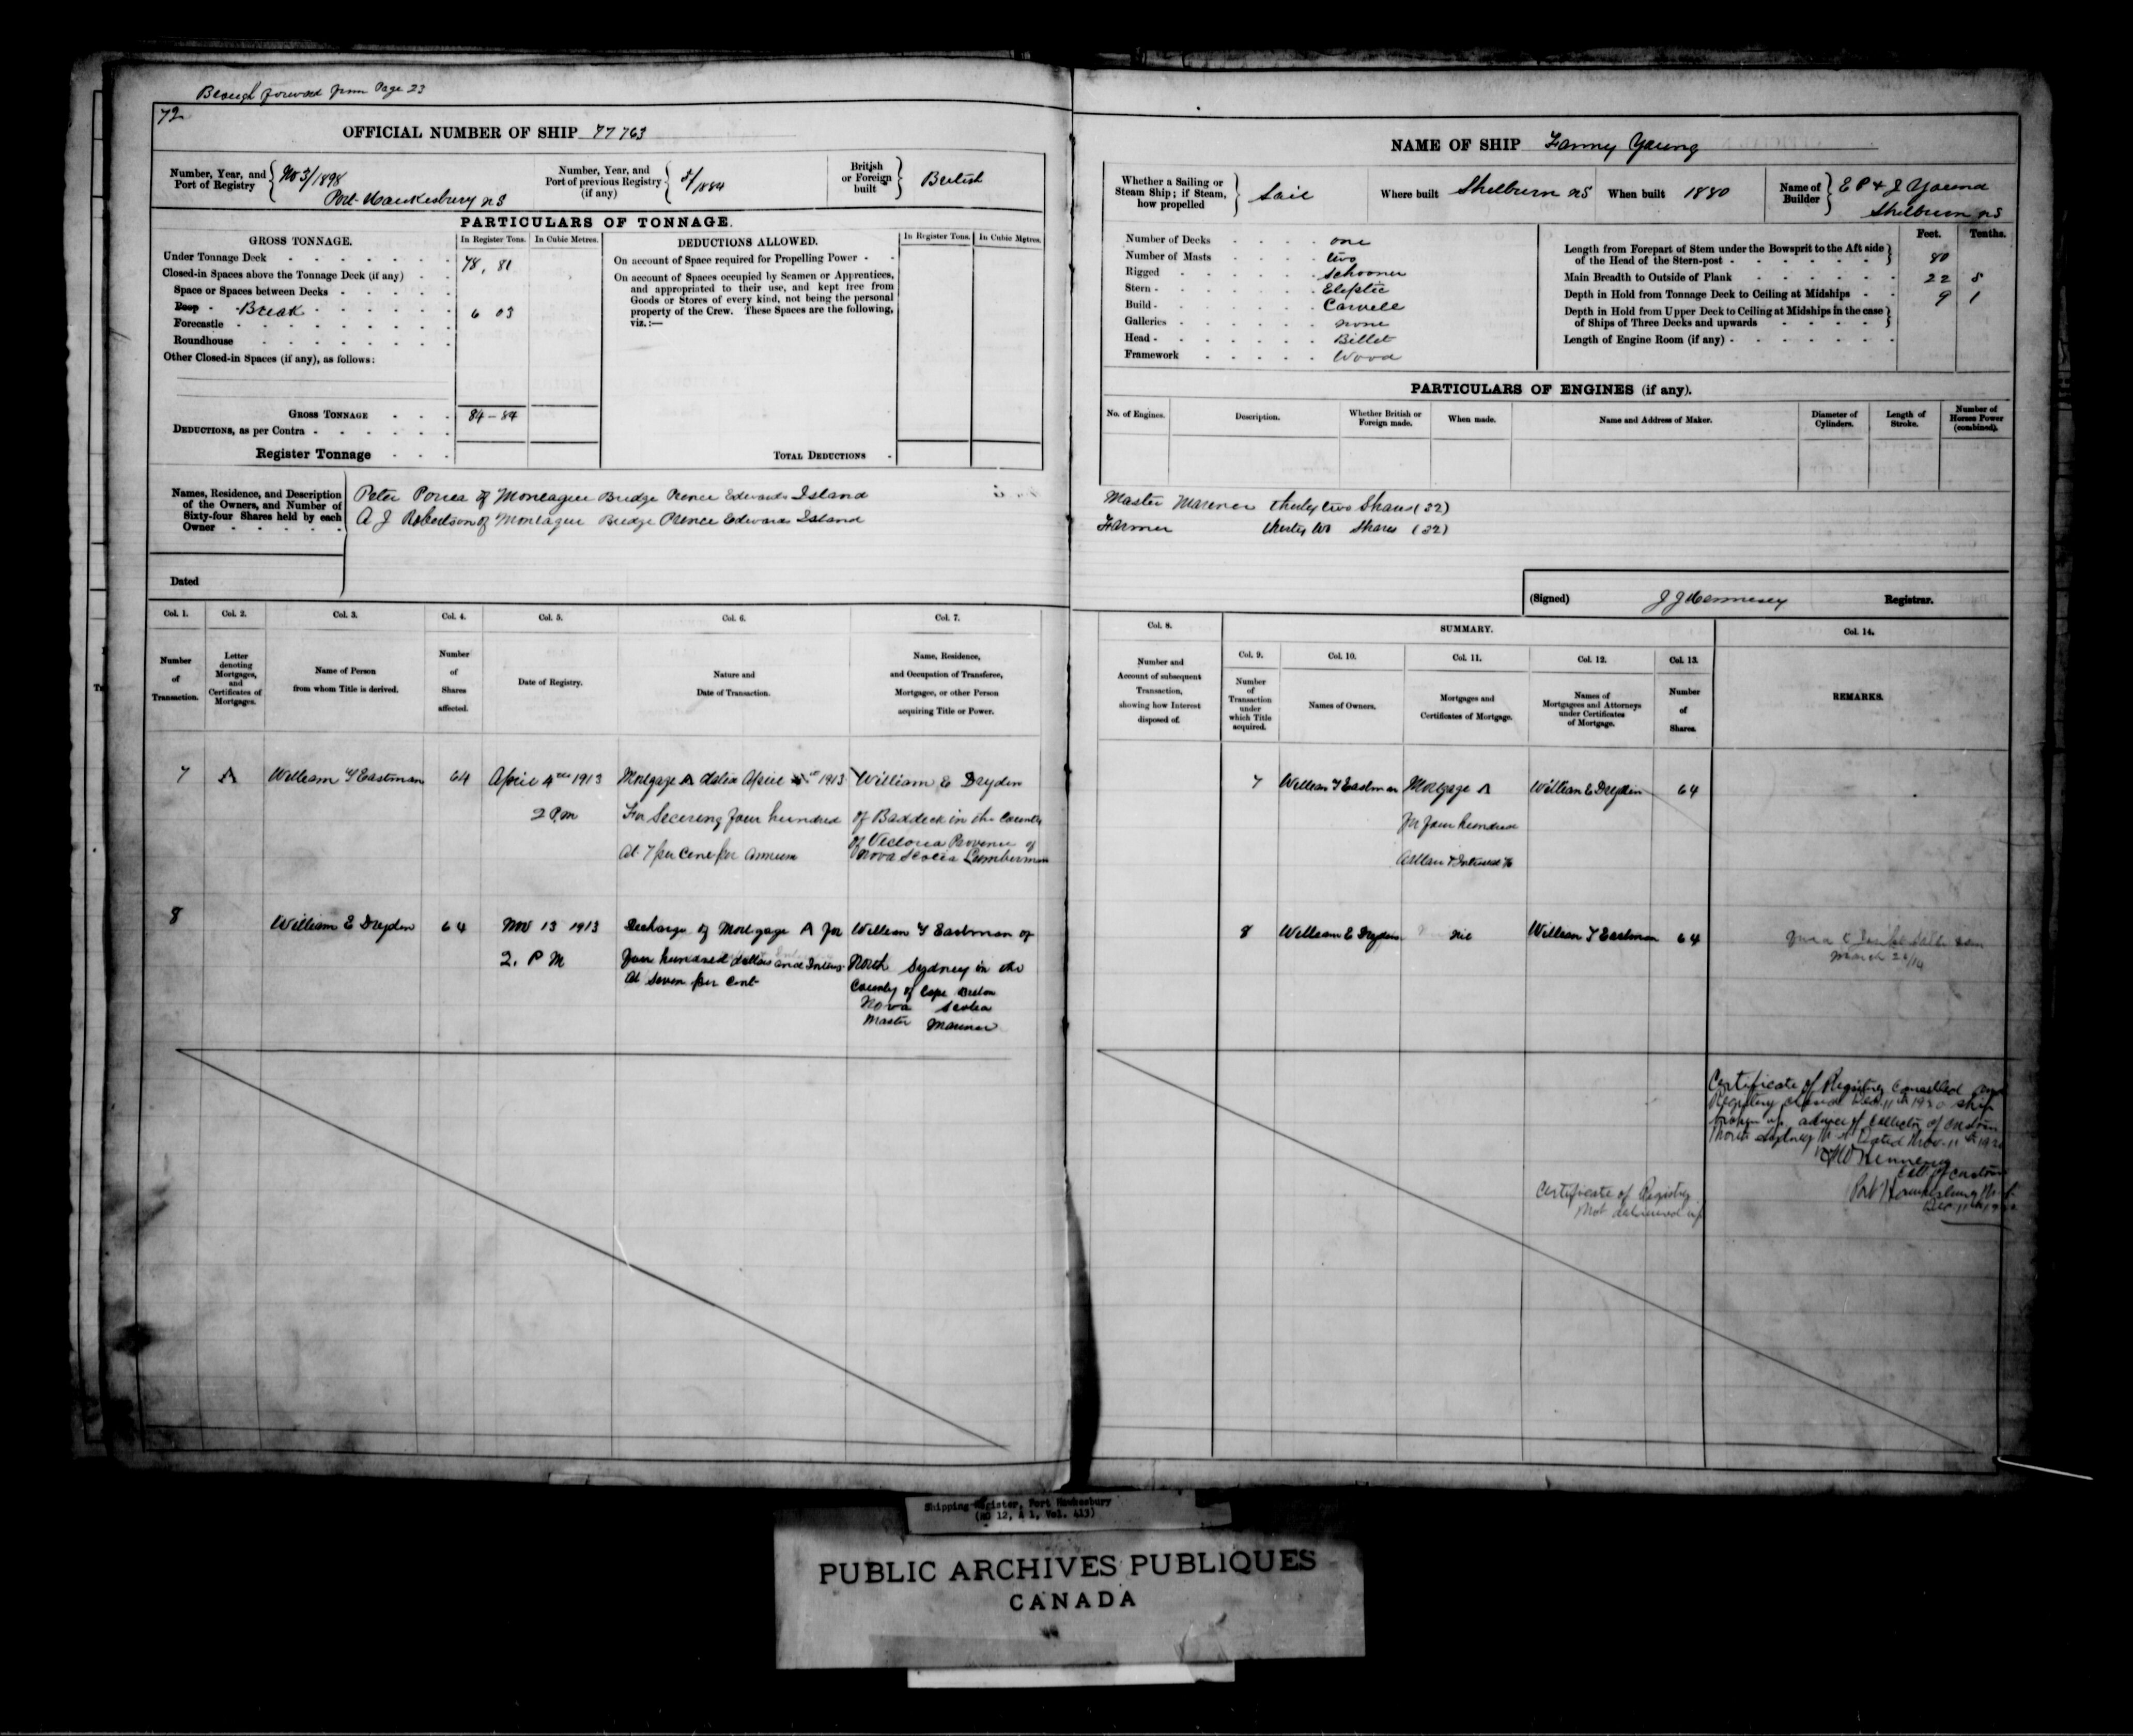 Brough forward from Page 23
72
OFFICIAL NUMBER OF SHIP 77763
Number, Year, and Port of Registry
No 3/1898
Port Hawkesbury NS
Number, Year, and Port of previous Registry (if any)
/1884
British or Foreign built
British
PARTICULARS OF TONNAGE.
GROSS TONNAGE.
In Register Tons.
In Cubic Metres.
DEDUCTIONS ALLOWED.
In Register Tons.
In Cubic Metres.
Under Tonnage Deck
78, 81
Closed-in Spaces above the Tonnage Deck (if any)
Space or Spaces between Decks
Poop - Break
6 03
Forecastle
Roundhouse
Other Closed-in Spaces (if any), as follows:
GROSS TONNAGE
84-84
DEDUCTIONS, as per Contra
Register Tonnage
On account of Space required for Propelling Power
On account of Spaces occupied by Seamen or Apprentices,
and appropriated to their use, and kept free from
Goods or Stores of every kind, not being the personal
property of the Crew. These Spaces are the following,
viz.:—
TOTAL DEDUCTIONS
Names, Residence, and Description
of the Owners, and Number of
Sixty-four Shares held by each
Owner
Peter of Montague Bridge Prence Edwards Island
A J Robertson of Montague Bredge Prence Edwards Island
Dated
NAME OF SHIP Fanny Young
Whether a Sailing or Steam Ship; if Steam, how propelled
Sail
Where built
Shelburn NS
When built
1880
Name of Builder
E P & J Young
Shelburn NS
Number of Decks one
Number of Masts two
Rigged Schooner
Stern Eleptic
Build Carvele
Galleries none
Head Billet
Framework Wood
Feet.
Tenths.
Length from Forepart of Stem under the Bowsprit to the Aft side
of the Head of the Stern-post
80
Main Breadth to Outside of Plank
22 8
Depth in Hold from Tonnage Deck to Ceiling at Midships
9 1
Depth in Hold from Upper Deck to Ceiling at Midships in the case
of Ships of Three Decks and upwards
Length of Engine Room (if any)
PARTICULARS OF ENGINES (if any).
No. of Engines.
Description.
Whether British or Foreign made.
When made.
Name and Address of Maker.
Diameter of Cylinders.
Length of Stroke.
Number of Horses Power (combined).
Master Mariner thirty two Shares (32)
Farmer thirty two Shares (32)
(Signed) J J Hennesey Registrar.
Col. 1.
Col. 2.
Col. 3.
Col. 4.
Col. 5.
Col. 6.
Col. 7.
Number of Transaction.
Letter denoting Mortgages, and Certificates of Mortgages.
Name of Person from whom Title is derived.
Number of Shares affected.
Date of Registry.
Nature and Date of Transaction.
Name, Residence, and Occupation of Transferee, Mortgagee, or other Person acquiring Title or Power.
7 A William Y Eastman 64 April 4th 1913 Mortgage A dated April 1913 William E Dryden
2 P.m For Secering four hundred of Baddeck in the County
at 7 per cent per annum of Victoria Province of
Nova Scotia Lumberman
8 William E Dryden 64 Nov 13 1913 Discharge of Mortgage A for William Y Eastman of
2. P M four hundred dollars and North Sydney in the
at Seven per cent County of Cape Breton
Nova Scotia
Master Mariner
Col. 8.
SUMMARY.
Col. 14.
Col. 9.
Col. 10.
Col. 11.
Col. 12.
Col. 13.
Number and Account of subsequent Transaction, showing how Interest disposed of.
Number of Transaction under which Title acquired.
Names of Owners.
Mortgages and Certificates of Mortgage.
Names of Mortgagees and Attorneys under Certificates of Mortgage.
Number of Shares.
REMARKS.
7 William Y Eastman Mortgage A William E Dryden 64
for four hundred
8 William E Dryden nil William Y Eastman 64
March
Certificate of Registry Cancelled and
Registry closed Dec. 11th 1920 ship
broken up advice of Collector of Customs
North Sydney N.S. Dated Nov. 11th
Coll. of Customs
Port Hawkesbury N.S.
Dec. 11th
Certificate of Registry
Not delivered up
Shipping Register, Port Hawkesbury
(RG 12, A 1, Vol. 413)
PUBLIC ARCHIVES PUBLIQUES
CANADA